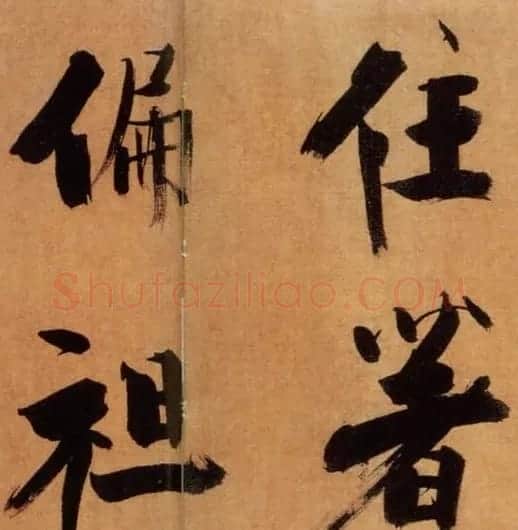 住著
偏袒
Shufaziliao.COM